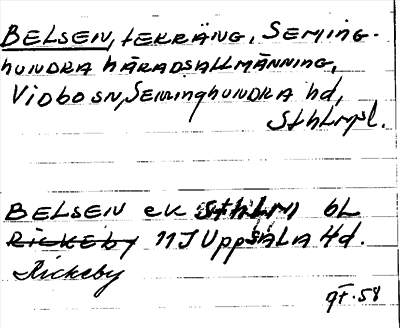 BELSEN, tERRÄNG, SEMING-
hUNDRA hÄRADSALLMÄNNING,
Vidbo sn, Seminghundra hd,
Sthlms l.
BELSEN ek Sthlm 6L
Rickeby 11I Uppsala 4d.
Rickeby
gt. 58